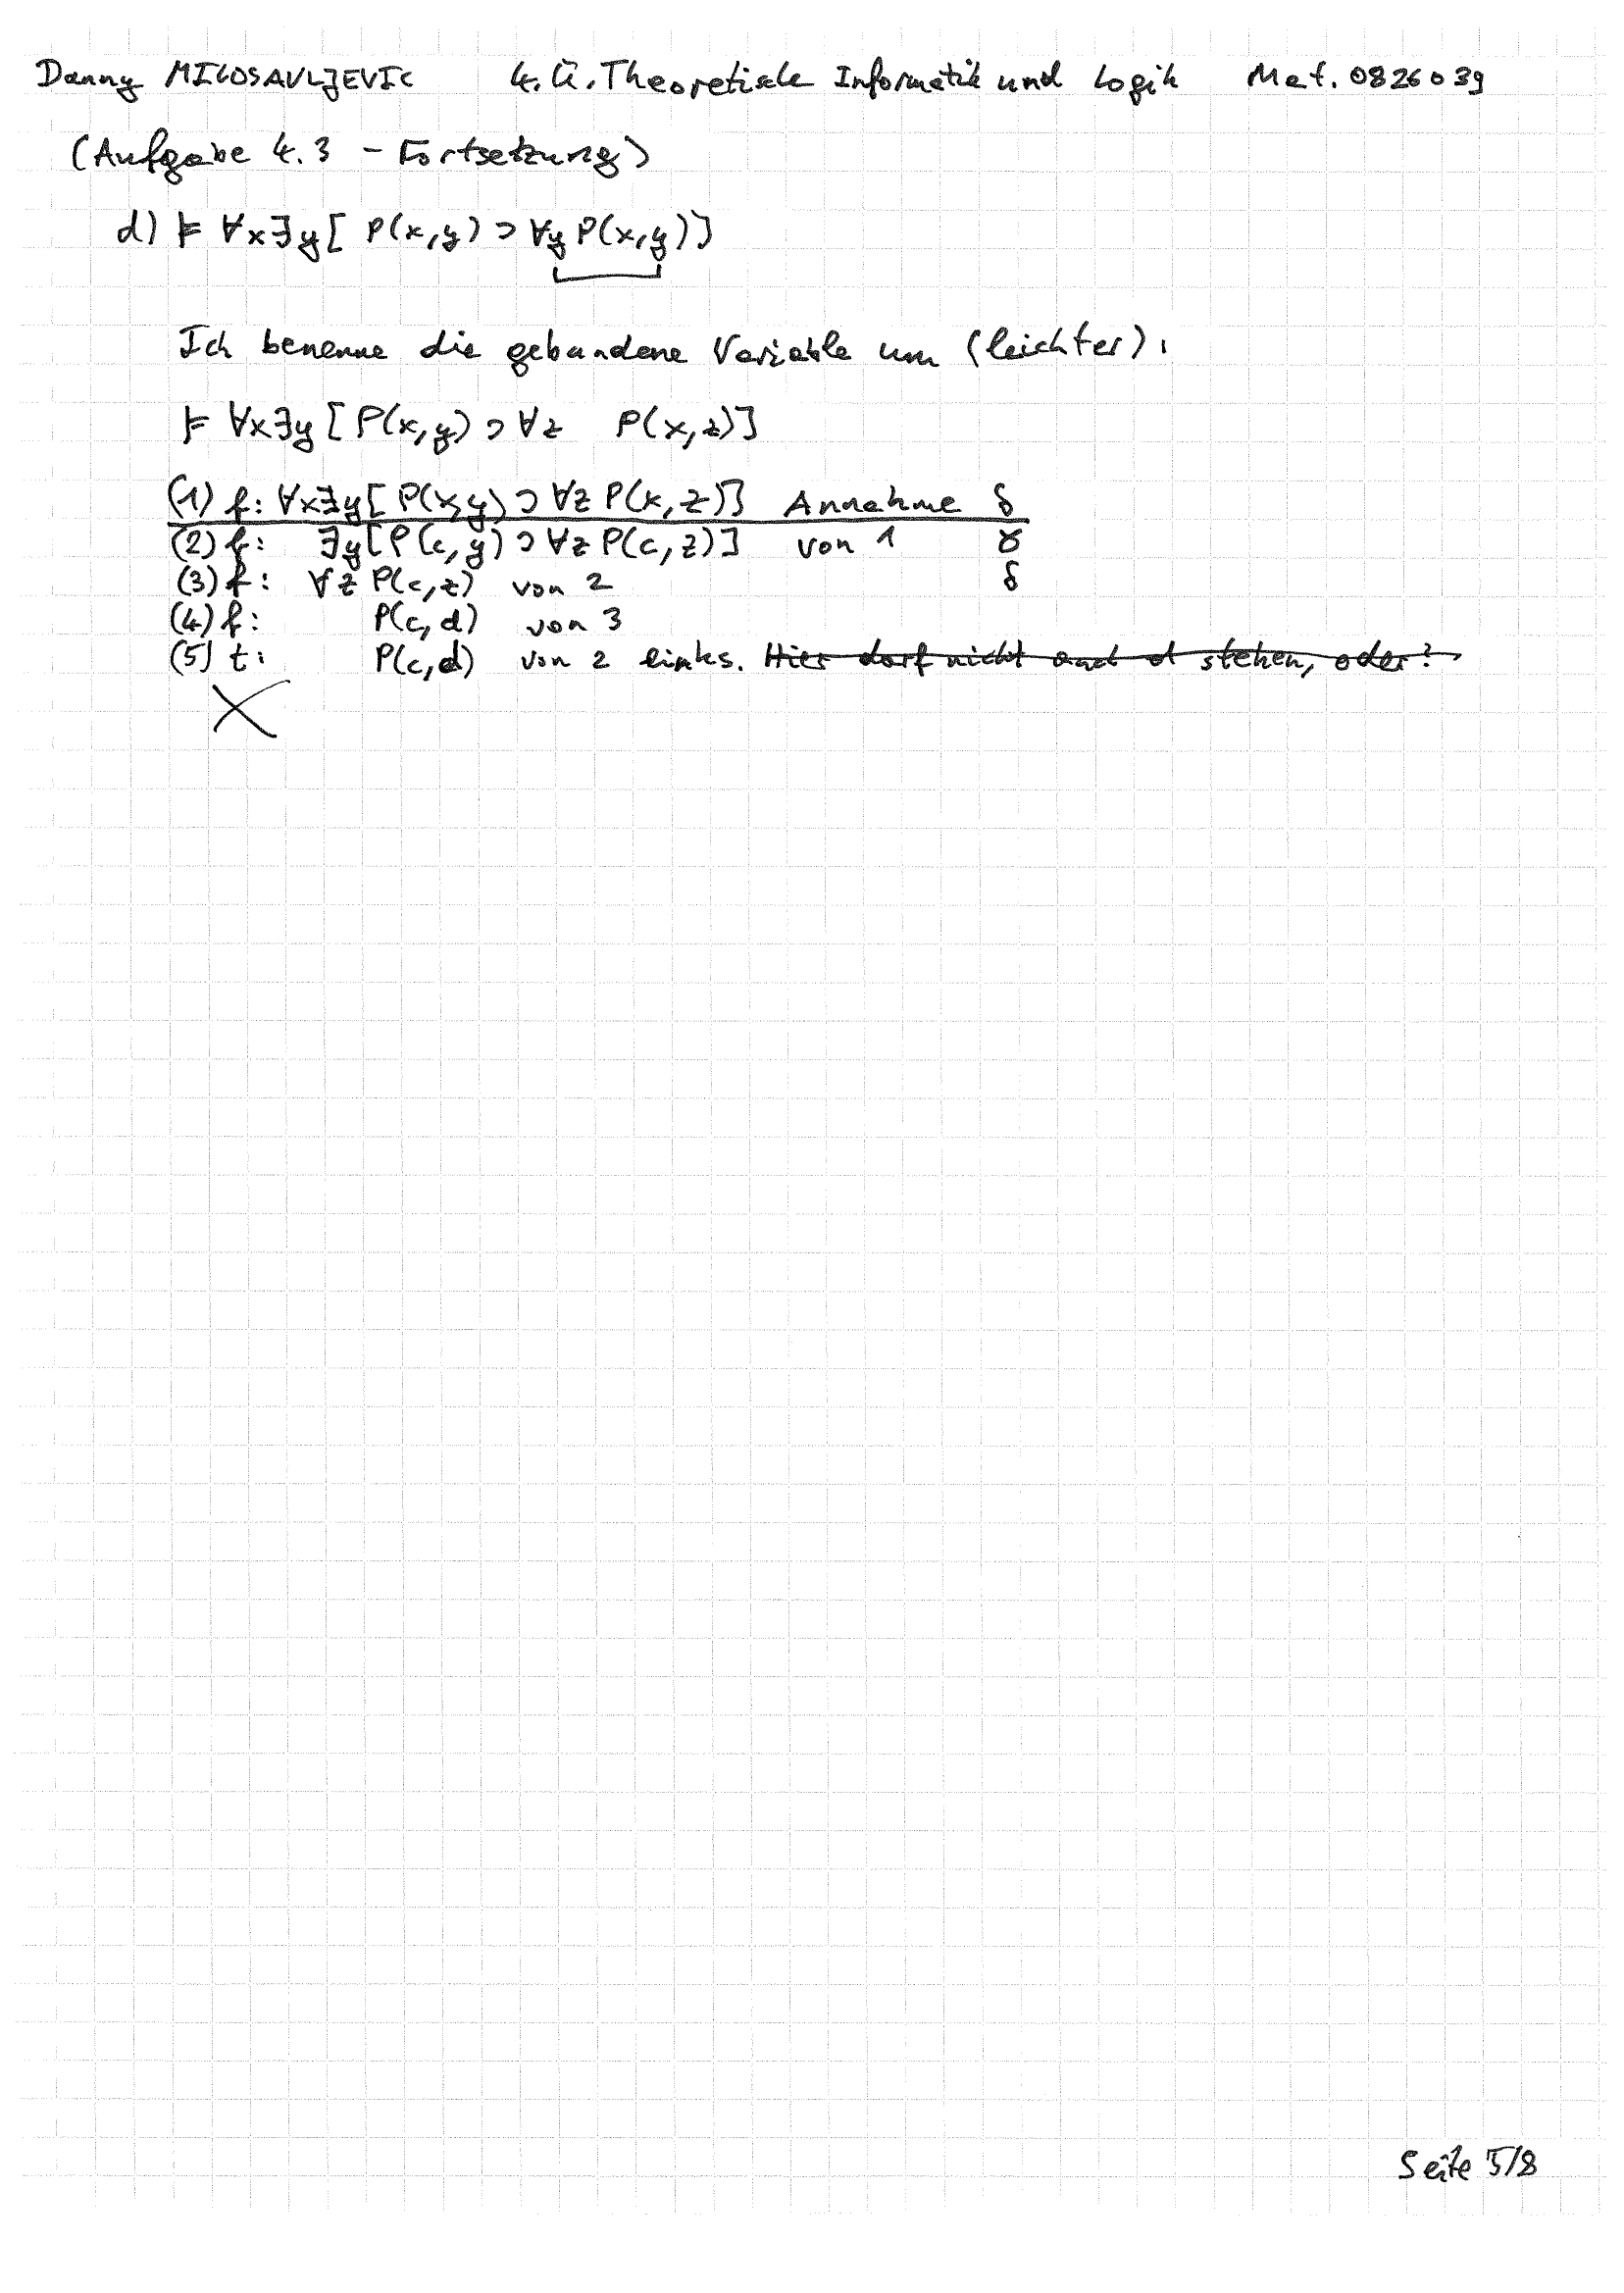 Danny MILOSAVLJEVIC 4. Ü. Theoretische Informatik und Logik Mat. 0826039
(Aufgabe 4.3 - Fortsetzung)
d) ⊧ ∀x∃y[ P(x,y) ⊃ ∀y P(x,y)]
Ich benenne die gebundene Variable um (leichter).
⊧ ∀x∃y [P(x,y) ⊃ ∀z P(x,z)]
(1) f: ∀x∃y[ P(x,y) ⊃ ∀z P(x,z)] Annahme δ
(2) f: ∃y[P(c,y) ⊃ ∀z P(c,z)] von 1 γ
(3) f: ∀z P(c,z) von 2 δ
(4) f: P(c,d) von 3
(5) t: P(c,d) von 2 links. Hier darf nicht auch d stehen, oder?
X
Seite 5/8